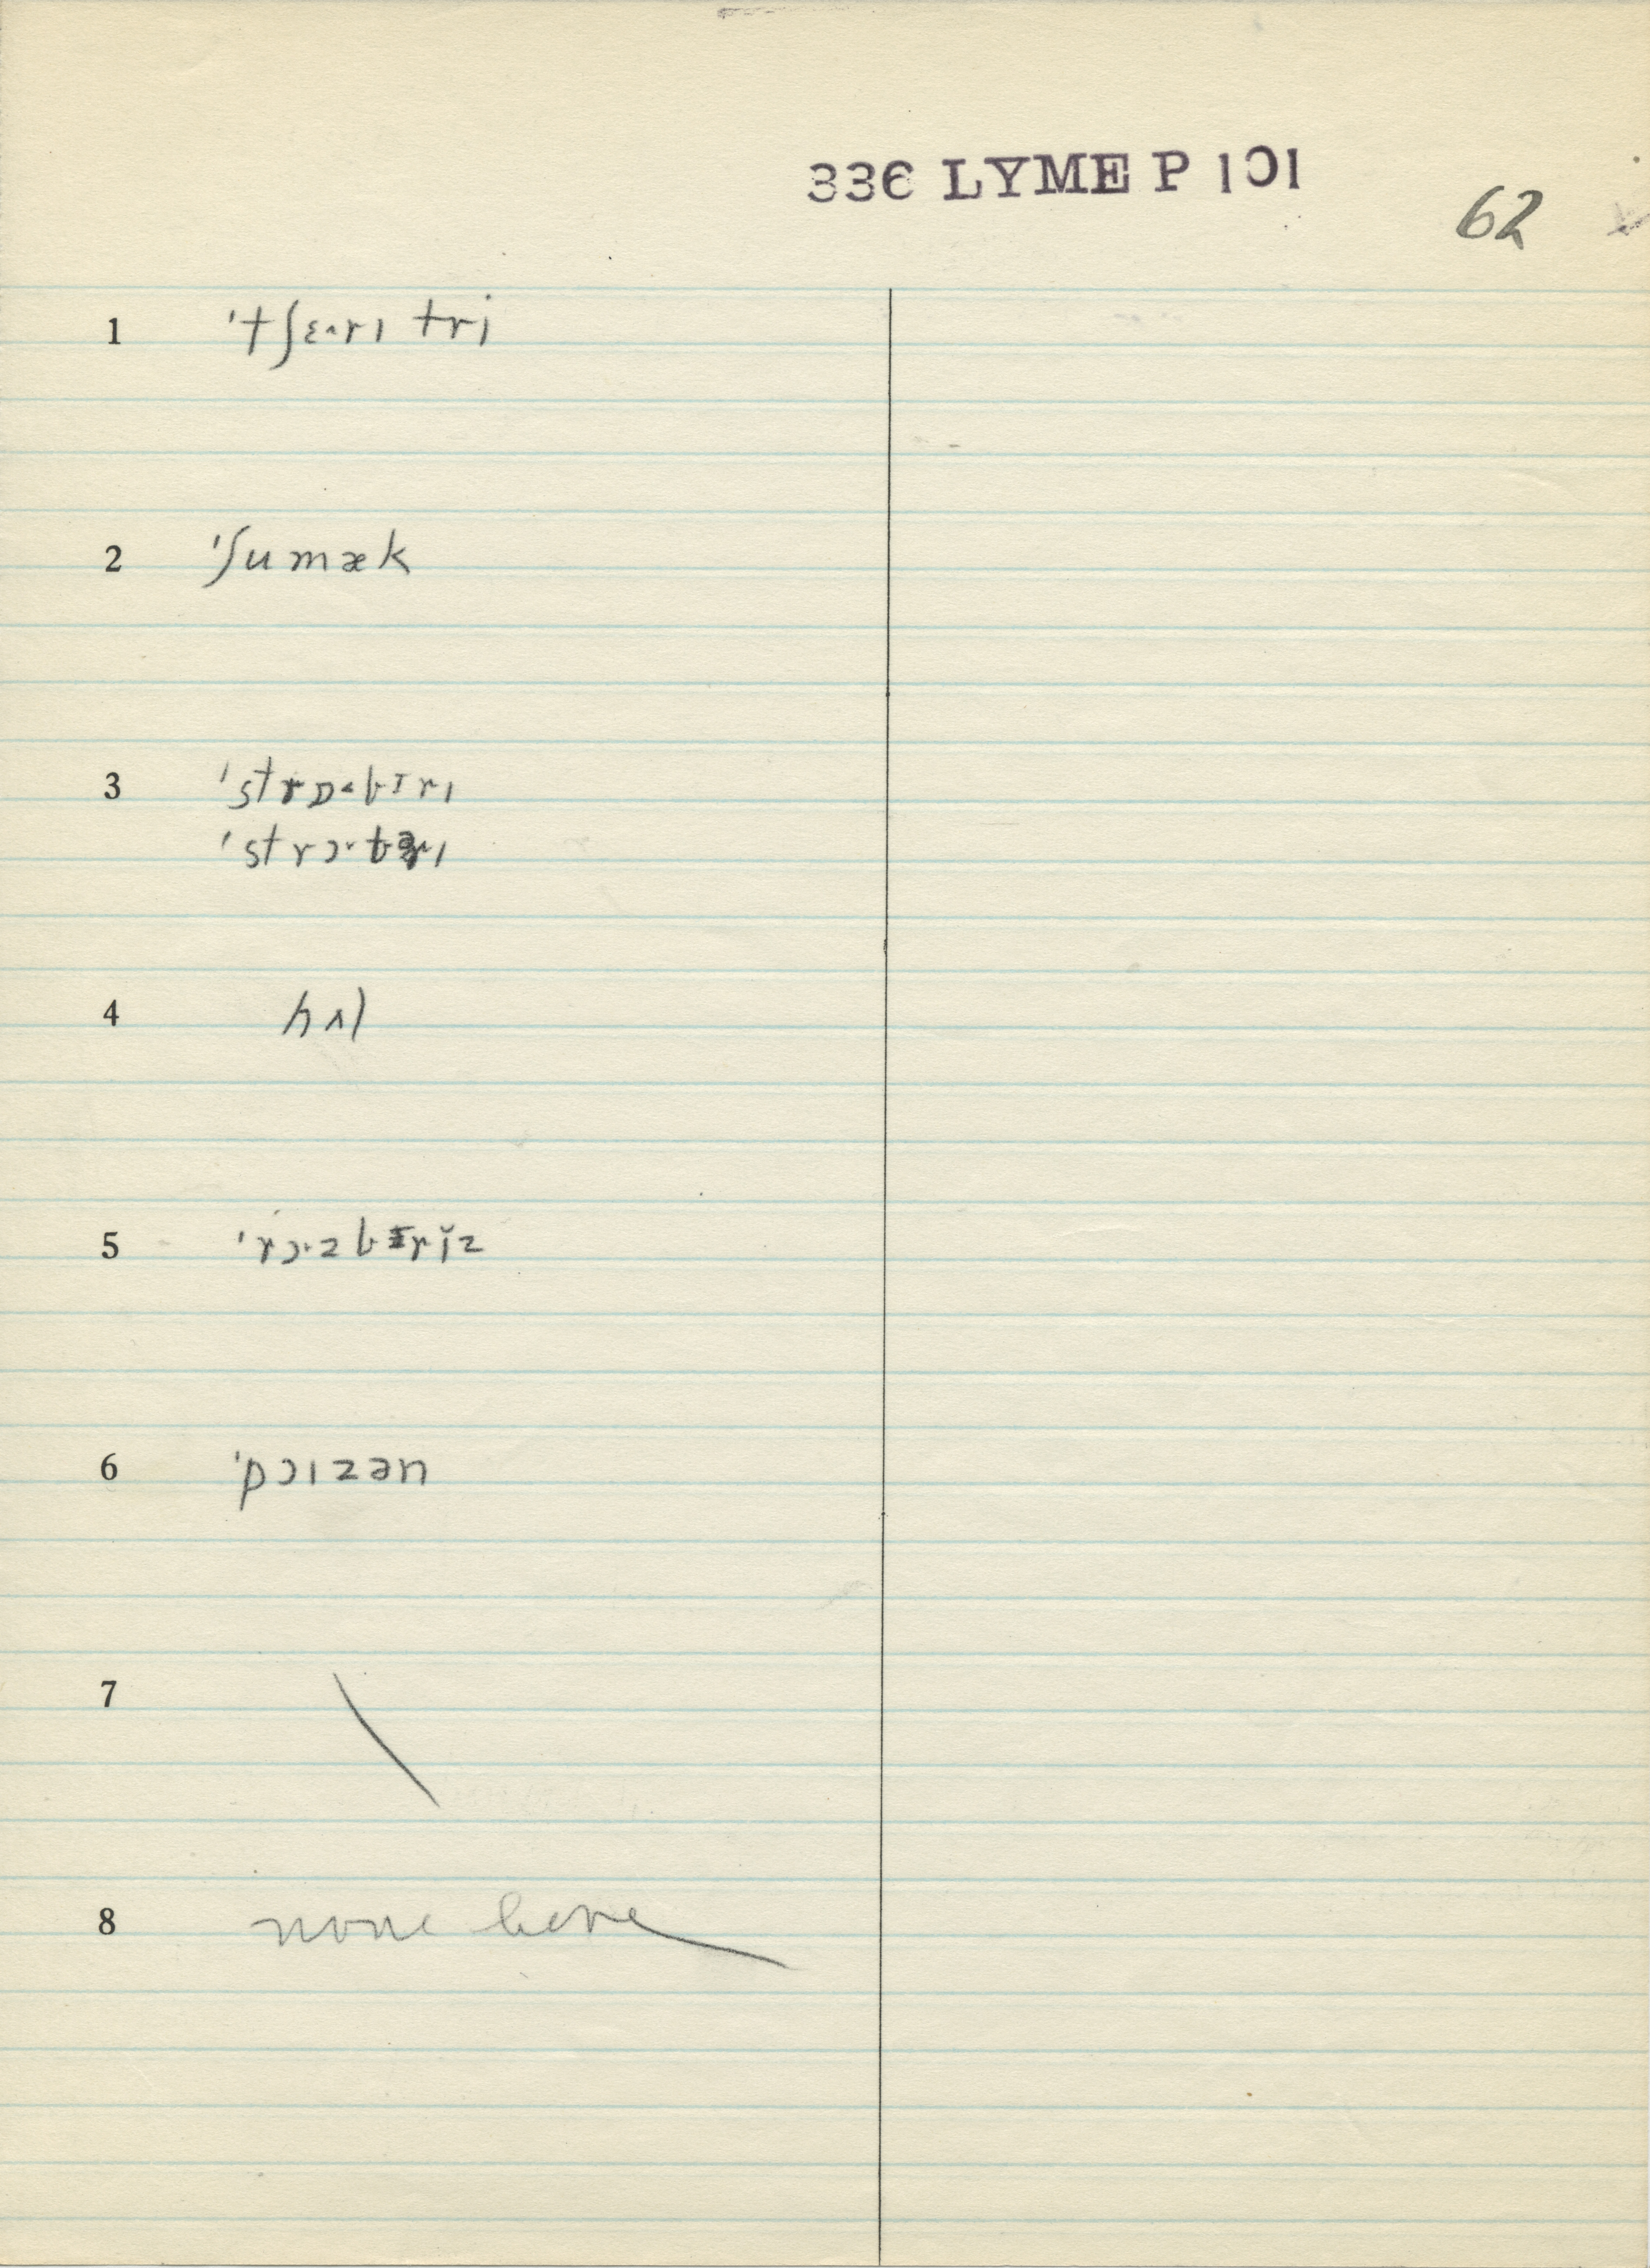 336 LYME P 101
62
1 ˈtʃɛ˖rɪ tri
2 ˈʃumæk
3 ˈstrɒ˂bɪrɪ
ˈstrɔ˔
4 hʌl
5 ˈrɔ˔zbɪrĭz
6 ˈpɔɪzən
7
8 none here